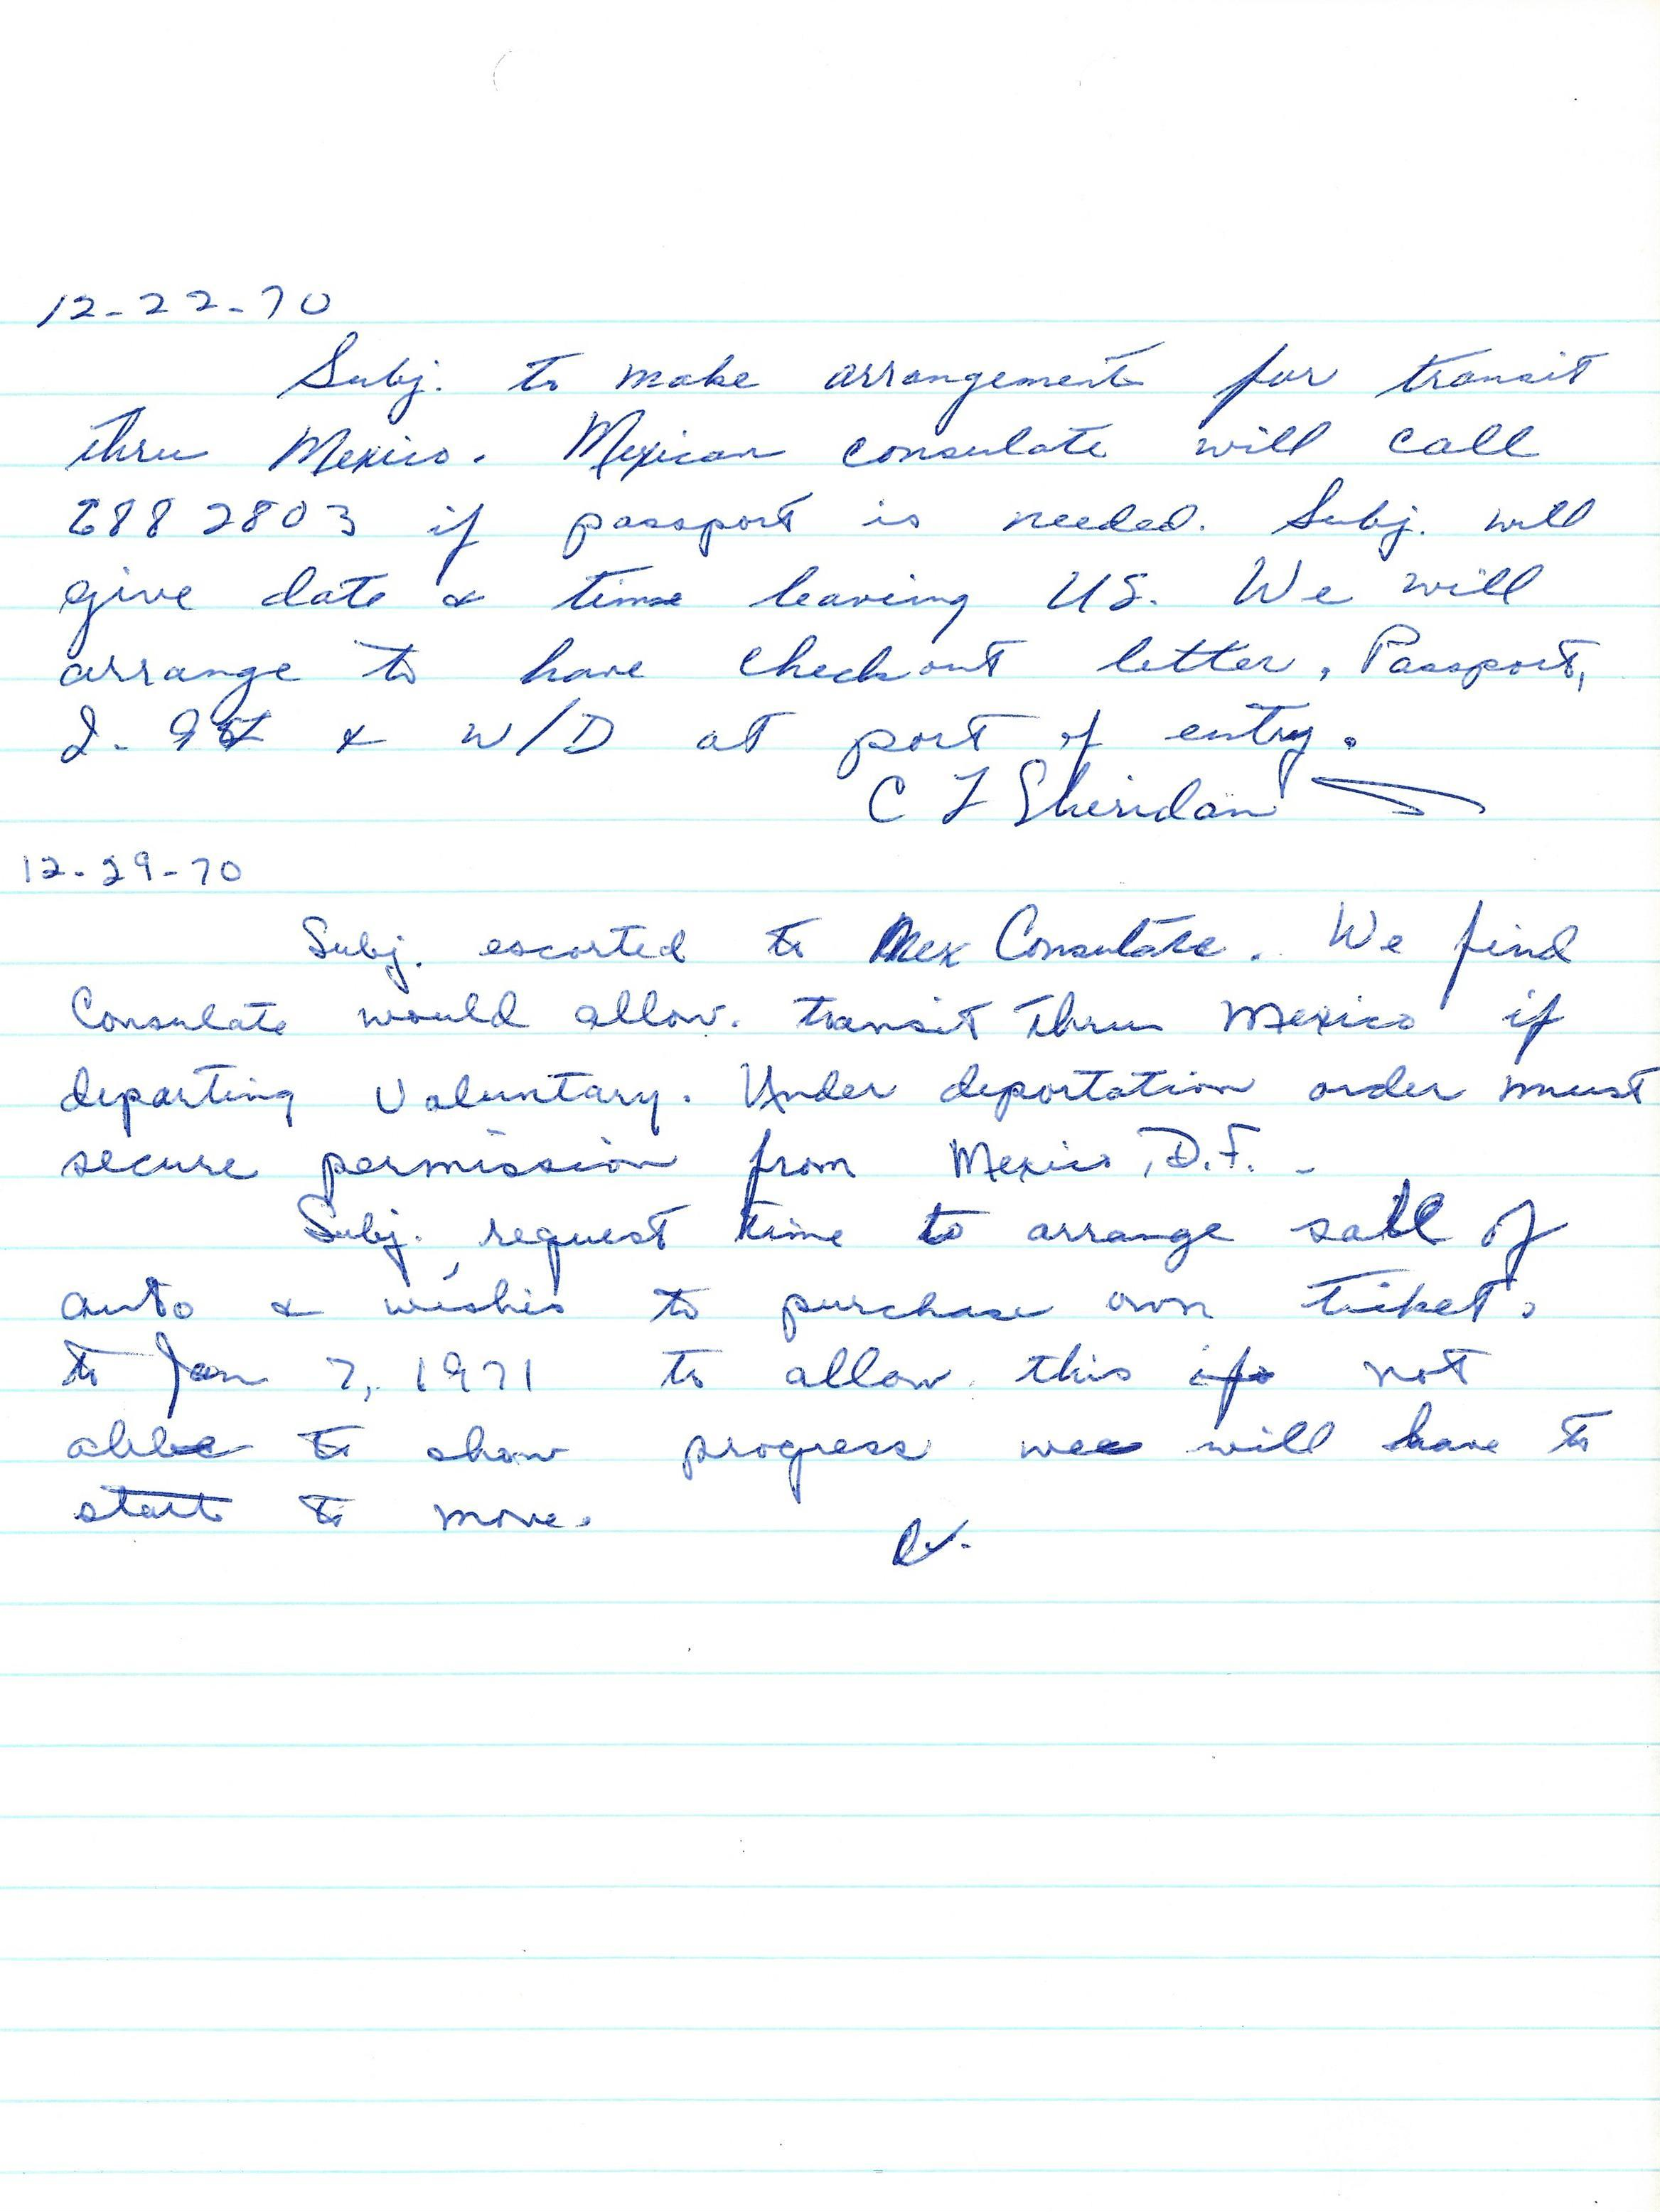 12-22-70
Subj. to make arrangements for transit
thru Mexico. Mexican consulate will call
688 2803 if passport is needed. Subj. will
give date & time leaving US. We will
arrange to have check out letter, Passport,
I- & W/D at port of entry.
C L Sheridan
12-29-70
Subj. escorted to Mex Consulate. We find
Consulate would allow. transit thru Mexico if
departing Voluntary. Under deportation order must
secure permission from Mexico, D.F. -
Subj. request time to arrange sale of
auto & wishes to purchase own ticket.
to Jan 7, 1971 to allow this if not
able to show progress we will have to
start to move.